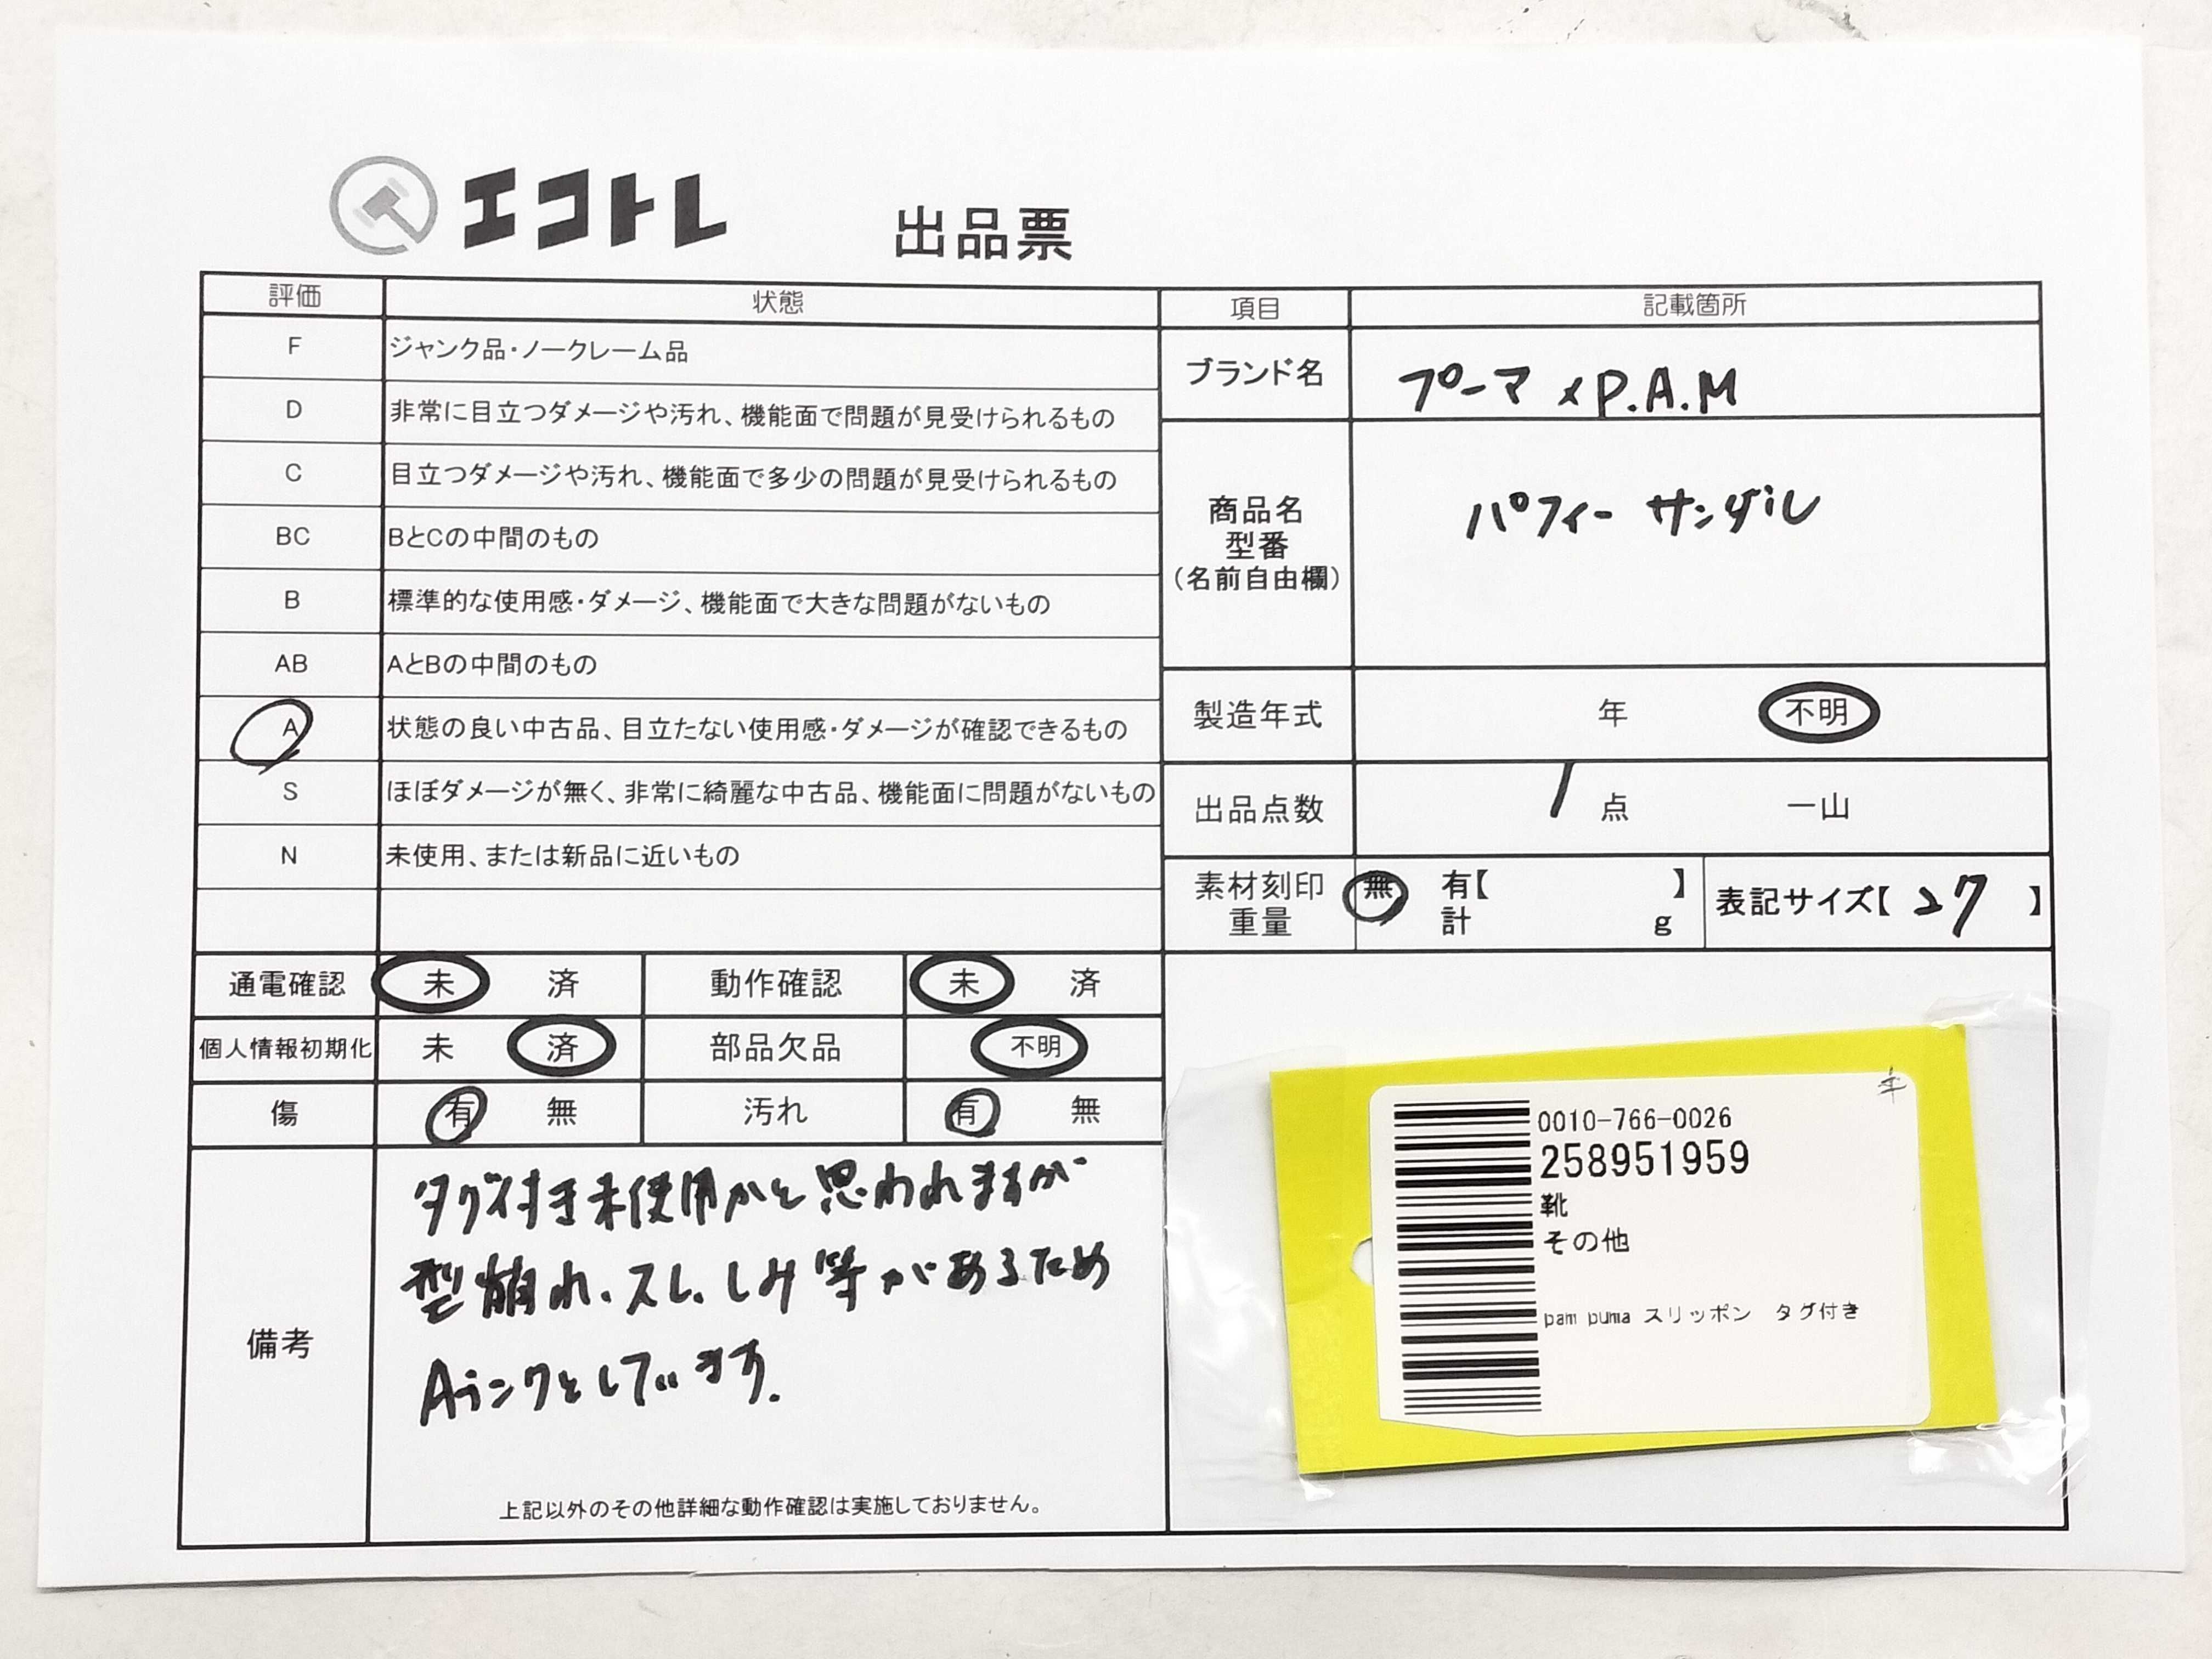 エコトレ
出品票
評価 状態
F ジャンク品・ノークレーム品
D 非常に目立つダメージや汚れ、機能面で問題が見受けられるもの
C 目立つダメージや汚れ、機能面で多少の問題が見受けられるもの
BC BとCの中間のもの
B 標準的な使用感・ダメージ、機能面で大きな問題がないもの
AB AとBの中間のもの
A 状態の良い中古品、目立たない使用感・ダメージが確認できるもの
S ほぼダメージが無く、非常に綺麗な中古品、機能面に問題がないもの
N 未使用、または新品に近いもの
通電確認 未 済 動作確認 未 済
個人情報初期化 未 済 部品欠品 不明
傷 有 無 汚れ 有 無
備考
タグ付き未使用かと思われますが
型崩れ、スレ、しみ等があるため
Aランクとしています.
上記以外のその他詳細な動作確認は実施しておりません。
項目 記載箇所
ブランド名 プーマ×P.A.M
商品名
型番
（名前自由欄）
パフィー サンダル
製造年式 年 不明
出品点数 1 点 一山
素材刻印 無 有【 】
重量 計 g
表記サイズ【 27 】
0010-766-0026
258951959
靴
その他
pam puma スリッポン タグ付き